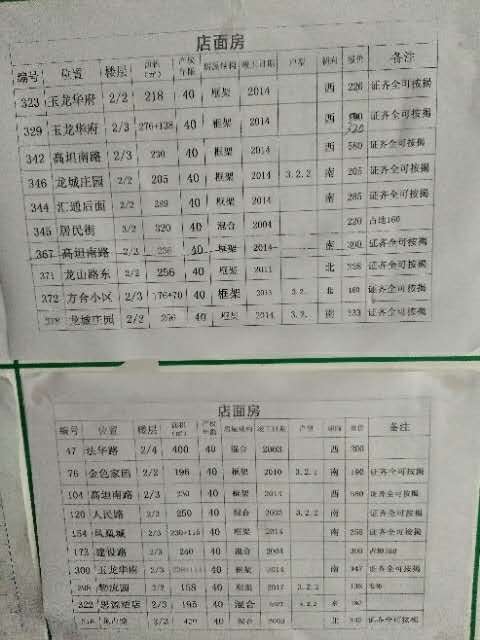 店面房
编号 位置 楼层 面积(㎡) 产权年限 房屋结构 竣工日期 户型 朝向 报价 备注
323 玉龙华府 2/2 218 40 框架 2014 西 226 证齐全可按揭
329 玉龙华府 2/3 276+138 40 框架 2014 西 320 证齐全可按揭
342 高坦南路 2/3 230 40 框架 2014 西 580 证齐全可按揭
346 龙城庄园 2/2 205 40 框架 2014 3.2.2 南 205 证齐全可按揭
344 汇通后面 2/2 269 40 框架 2014 南 285 证齐全可按揭
345 居民街 3/2 320 40 混合 2004 220 占地160
367 高坦南路 2/3 40 框架 2014 南 证齐全可按揭
371 龙山路东 2/2 256 40 框架 北 证齐全可按揭
372 方合小区 2/3 176+70 40 框架 3.2. 北 证齐全可按揭
龙城庄园 2/2 256 40 框架 2014 3.2. 南 233 证齐全可按揭
店面房
编号 位置 楼层 面积(㎡) 产权年限 房屋结构 竣工日期 户型 朝向 报价 备注
47 法华路 2/4 400 40 混合 2003 西 300
76 金色家园 2/2 196 40 框架 2010 3.2. 南 190 证齐全可按揭
104 高坦南路 2/3 230 40 框架 2014 西 580 证齐全可按揭
120 人民路 2/3 250 40 混合 2003 3.2.2 南 证齐全可按揭
154 凤凰城 2/3 40 框架 2014 南 258 证齐全可按揭
173 建设路 2/3 240 40 混合 2004 300
300 玉龙华府 2/3 40 框架 2014 南 347 证齐全可按揭
物流园 2/2 158 40 框架 2017 3.2.2
322 2/3 195 40 混合
2/2 40 混合 北 证齐全可按揭